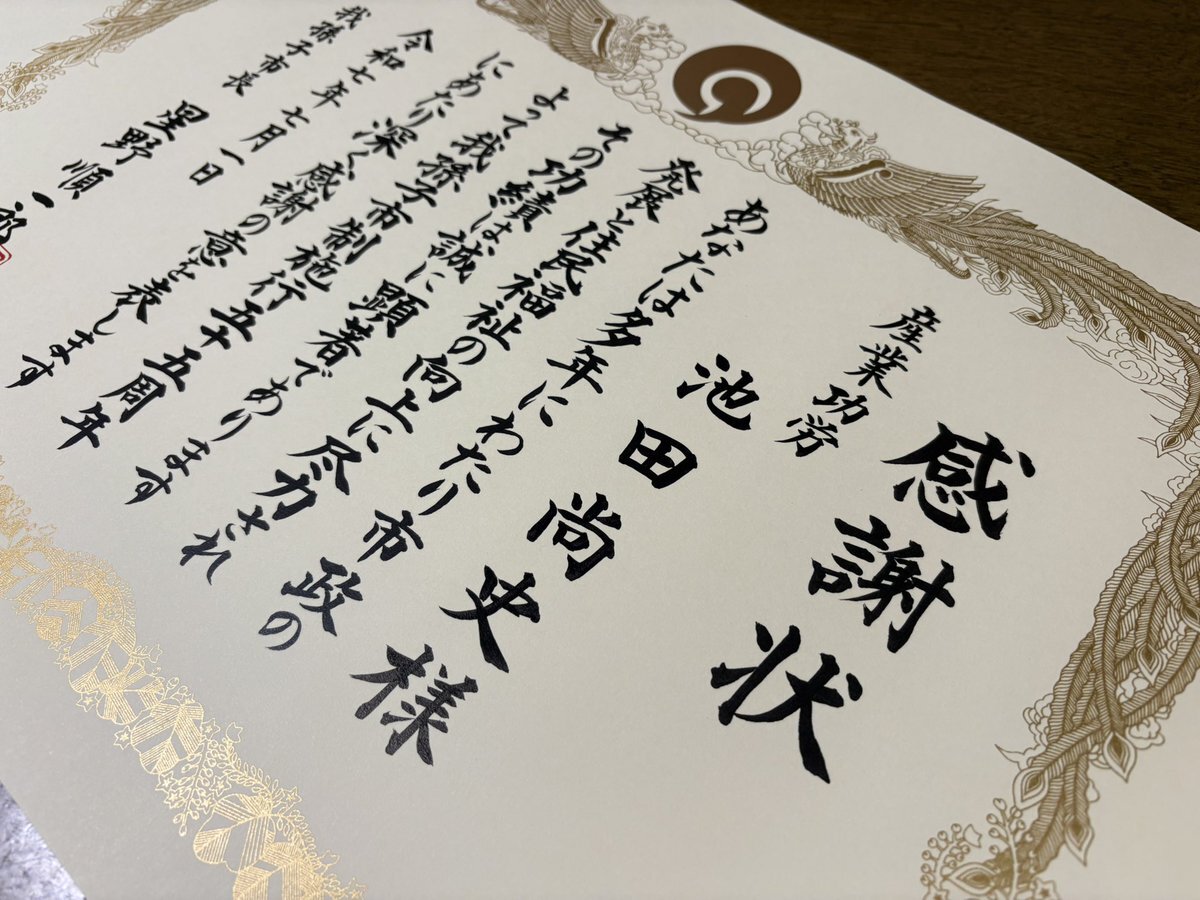 感謝状
産業功労
池田尚史様
あなたは多年にわたり市政の
発展と住民福祉の向上に尽力され
その功績は誠に顕著であります
よって我孫子市制施行五十五周年
にあたり深く感謝の意を表します
令和七年七月一日
我孫子市長
星野順一郎